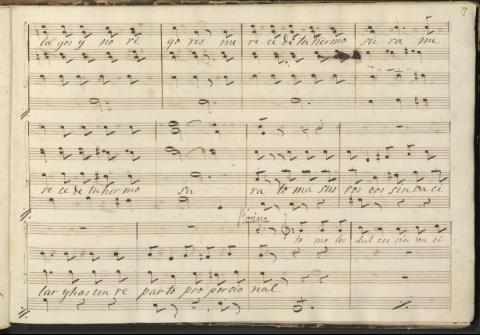 7
la gos y no ri go res me re ce de tu hermo su ra me
re ce de tu hermo su ra to ma sus ros cos sin va ci
to ma los dul ces sin va ci
lar y has un re par to pro porcio nal